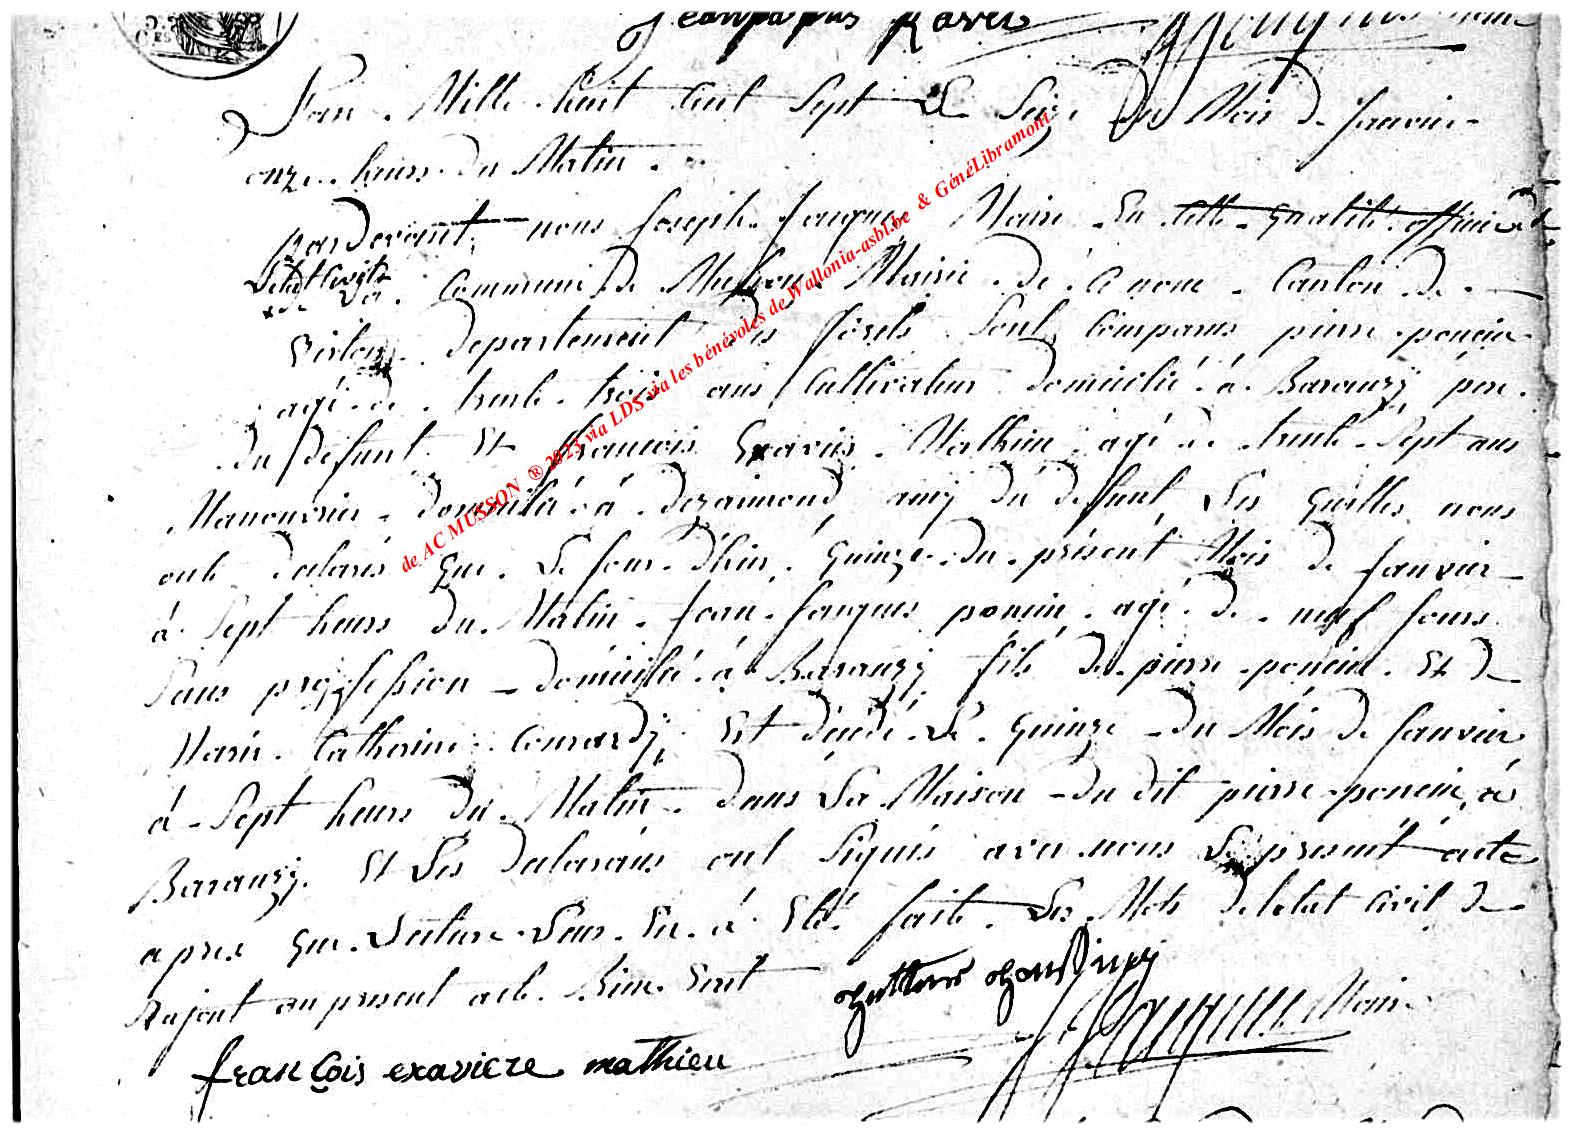 Jean papus Raver
Lan Mille huit Cent Sept Le Seize Du Mois de Janvier
onze heures du Matin
pardevant nous Joseph Jacques Maire En Cette Qualité officier de
Letat Civil
de La Commune De Musson Mairie de Canton de
Virton departement des forêts Sont Comparus pierre poncin
agé de trente trois ans Cultivateur domicilié à Baranzÿ pere
du défunt Et francois Exavier Mathieu agé de trente Sept ans
Manouvrier domicilié à amÿ du défunt Les Quelles nous
ont declarés Que Le Jour d'hier Quinze du présent Mois de Janvier
à Sept heures du Matin Jean Jacques poncin agé de neuf Jours
Sans profession domicilié à Baranzÿ fils de pierre poncin Et de
Marie Catherine Conrardÿ Est décédé Le Quinze du Mois de Janvier
à Sept heures du Matin dans La Maison du dit pierre poncin à
Baranzÿ Et Les declarans ont Signés avec nous Le présent acte
apres Que Lecture Leur En à Eté faite Les Mots de letat Civil de
Rajout au present acte
J Jacques Maire
françois exaviere mathieu
de AC MUSSON ® 2023 via LDS via les bénévoles de Wallonia-asbl.be & GénéLibramont